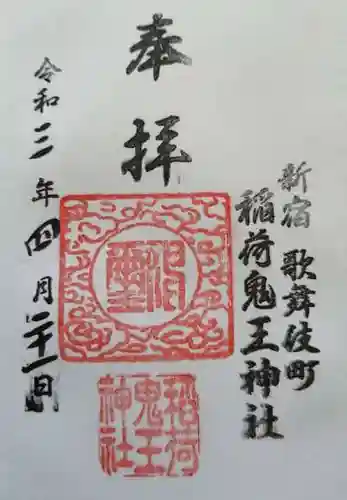 新宿 歌舞伎町
稲荷鬼王神社
奉拝
稲荷
鬼王
神社
令和三年四月二十一日